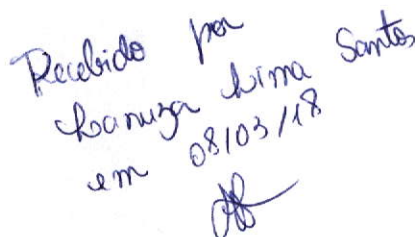 Recebido por
Lanuza Lima Santos
em 08/03/18